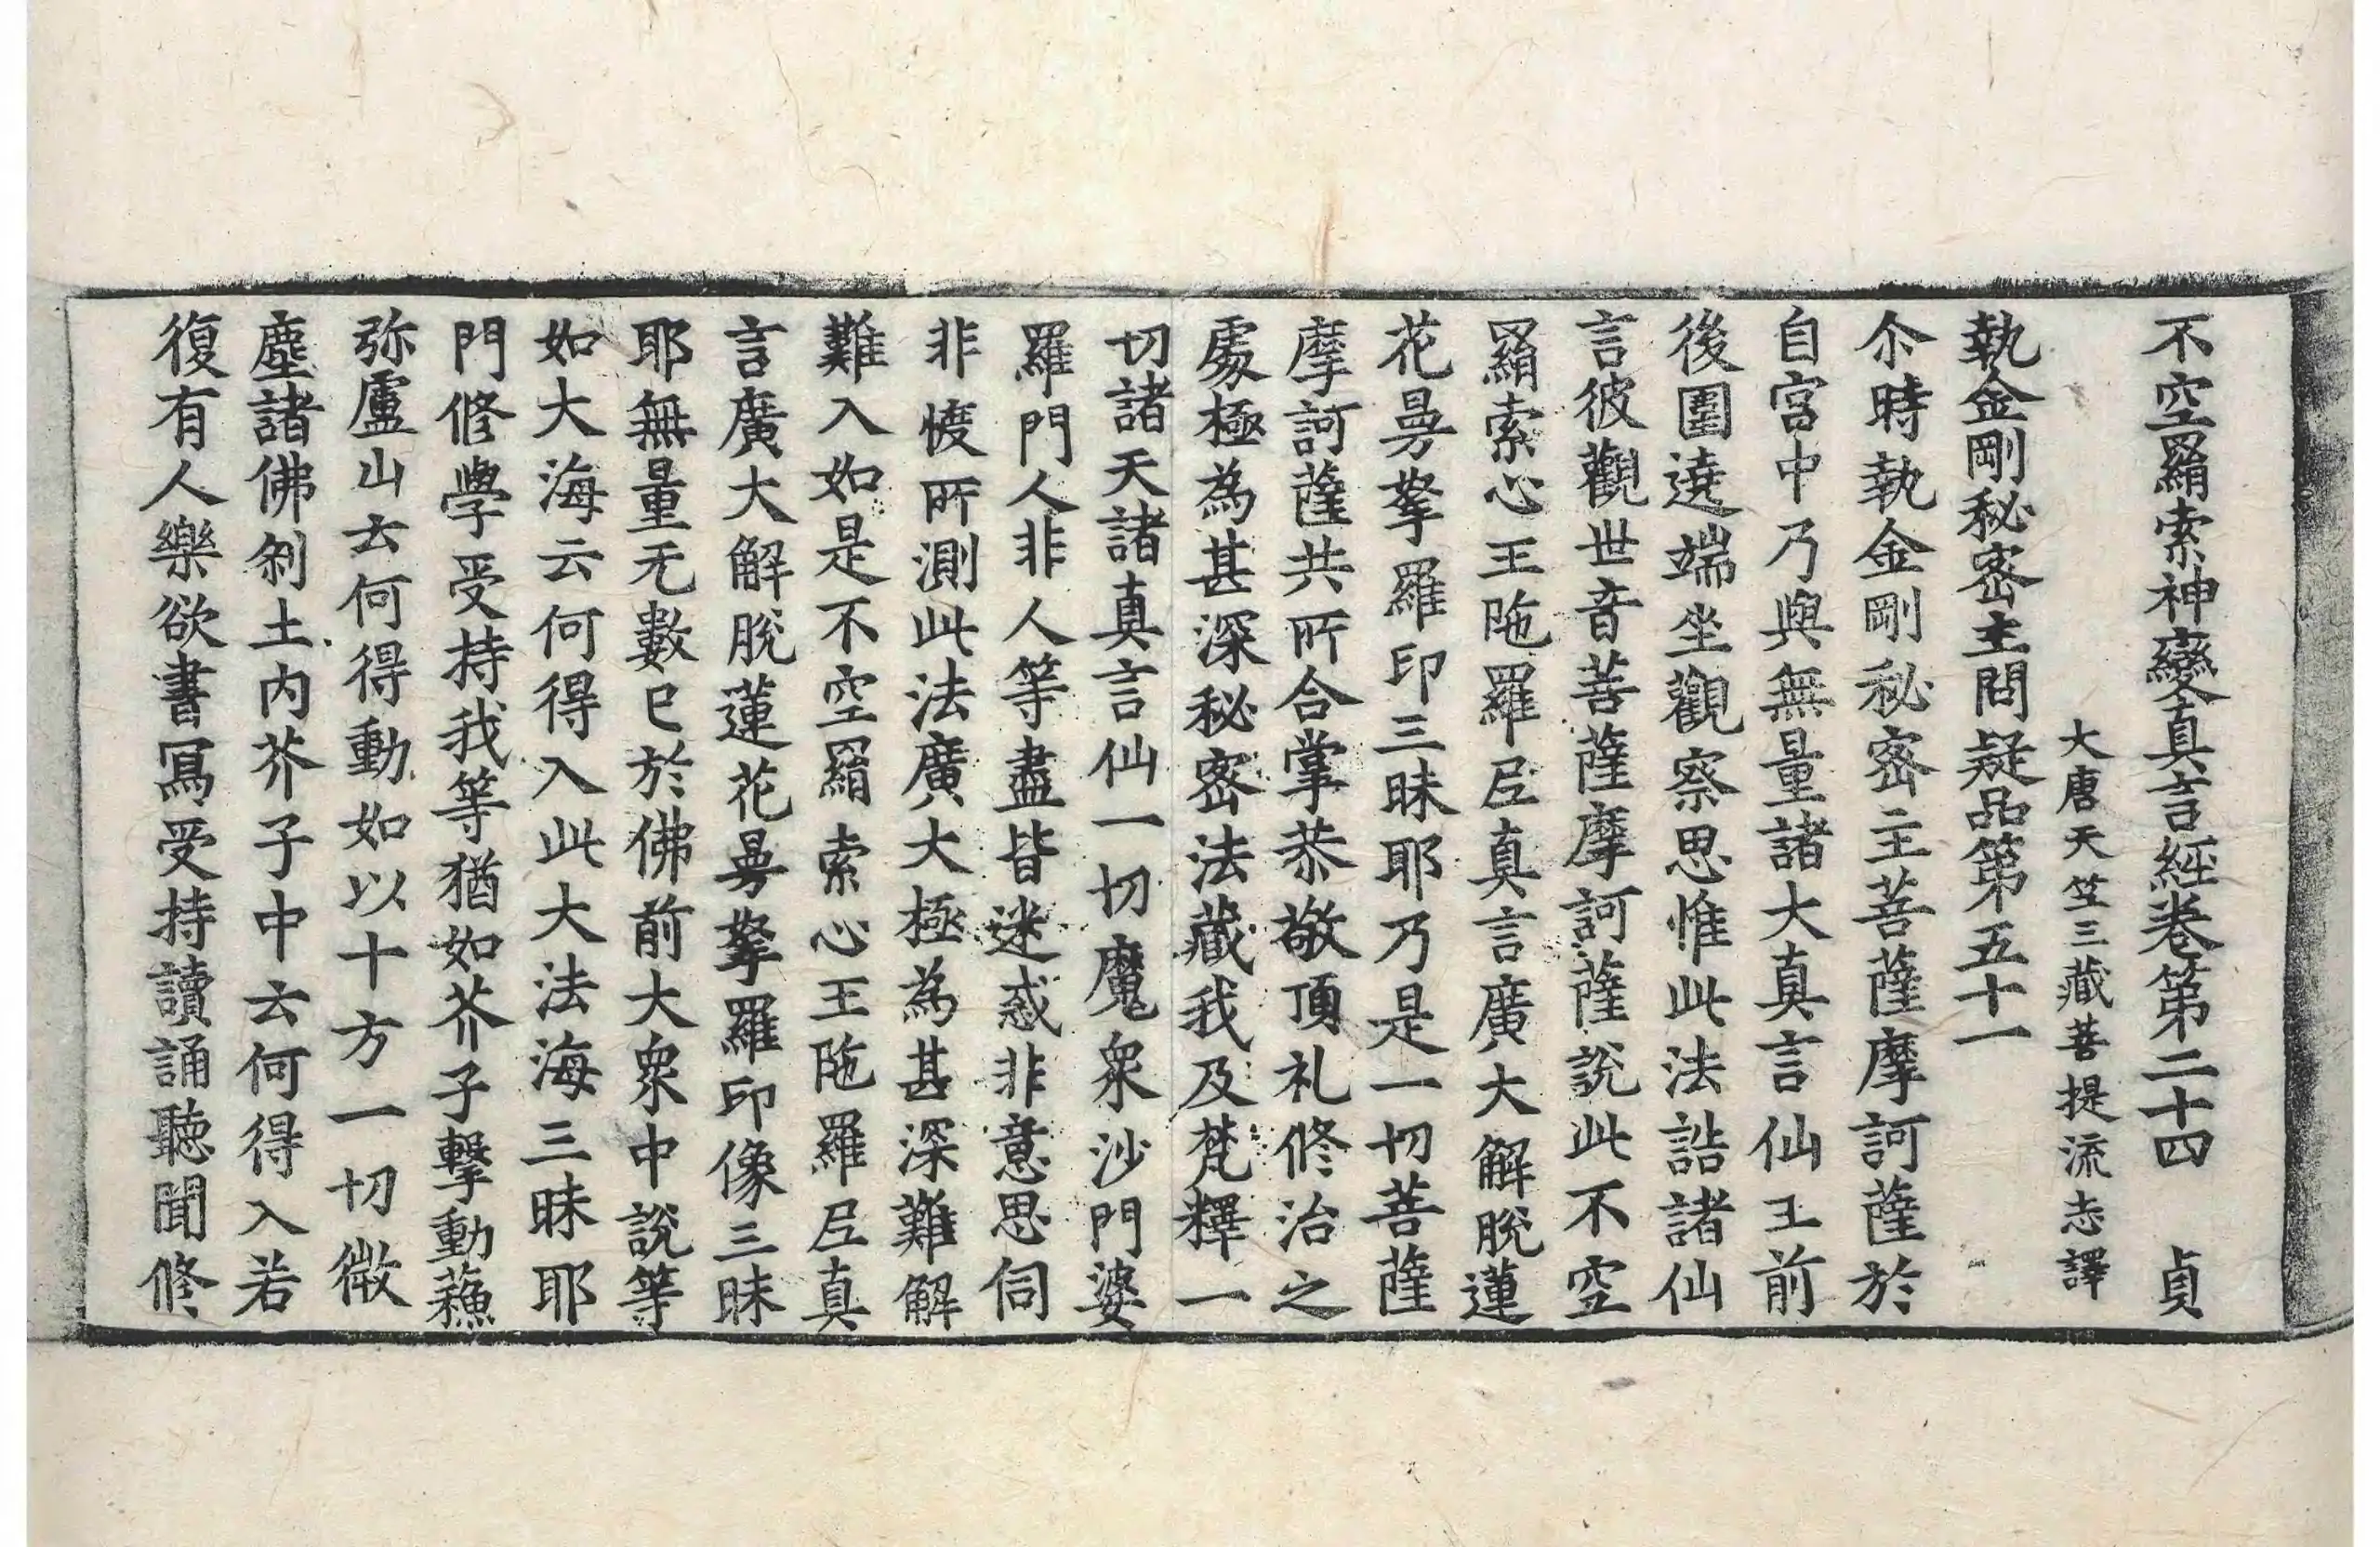 不空羂索神變真言經卷第二十四　貞
大唐天竺三藏菩提流志譯
執金剛秘密主問疑品第五十一
尒時執金剛秘密主菩薩摩訶薩於
自宮中乃與無量諸大真言仙王前
後圍遶端坐觀察思惟此法誥諸仙
言彼觀世音菩薩摩訶薩說此不空
羂索心王陁羅尼真言廣大解脫蓮
花曼拏羅印三昧耶乃是一切菩薩
摩訶薩共所合掌恭敬頂礼修治之
處極為甚深秘密法藏我及梵釋一
切諸天諸真言仙一切魔衆沙門婆
羅門人非人等盡皆迷惑非意思伺
非㥄所測此法廣大極為甚深難解
難入如是不空羂索心王陁羅尼真
言廣大解脫蓮花曼拏羅印像三昧
耶無量无數已於佛前大衆中說等
如大海云何得入此大法海三昧耶
門修學受持我等猶如芥子擊動蘇
弥盧山云何得動如以十方一切微
塵諸佛刹土內芥子中云何得入若
復有人樂欲書寫受持讀誦聽聞修